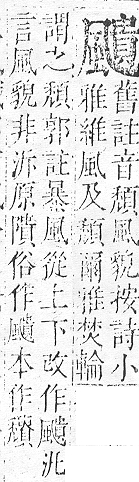 舊註音頹風貌按詩小
雅維風及頹爾雅焚輪
謂之頹郭註暴風從上下改作泛
言風貌非泝原隤俗作本作穨